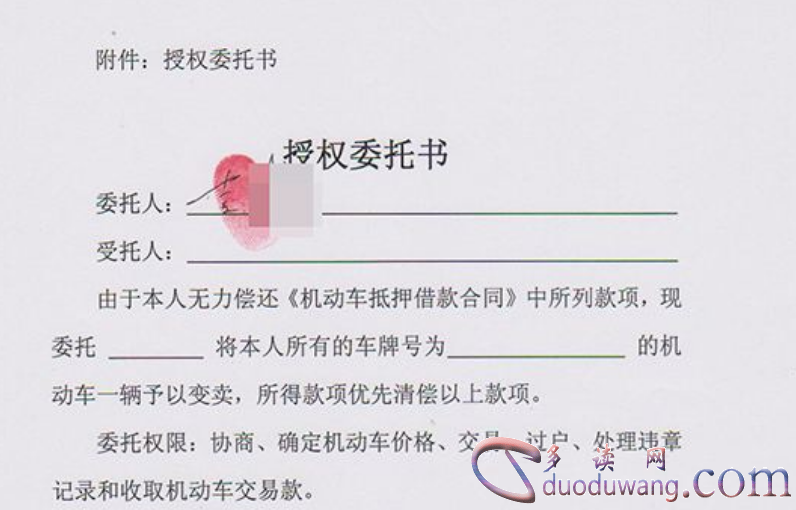 附件：授权委托书
授权委托书
委托人：
受托人：
由于本人无力偿还《机动车抵押借款合同》中所列款项，现
委托 将本人所有的车牌号为 的机
动车一辆予以变卖，所得款项优先清偿以上款项。
委托权限：协商、确定机动车价格、交易、过户、处理违章
记录和收取机动车交易款。
多读网
duoduwang.com